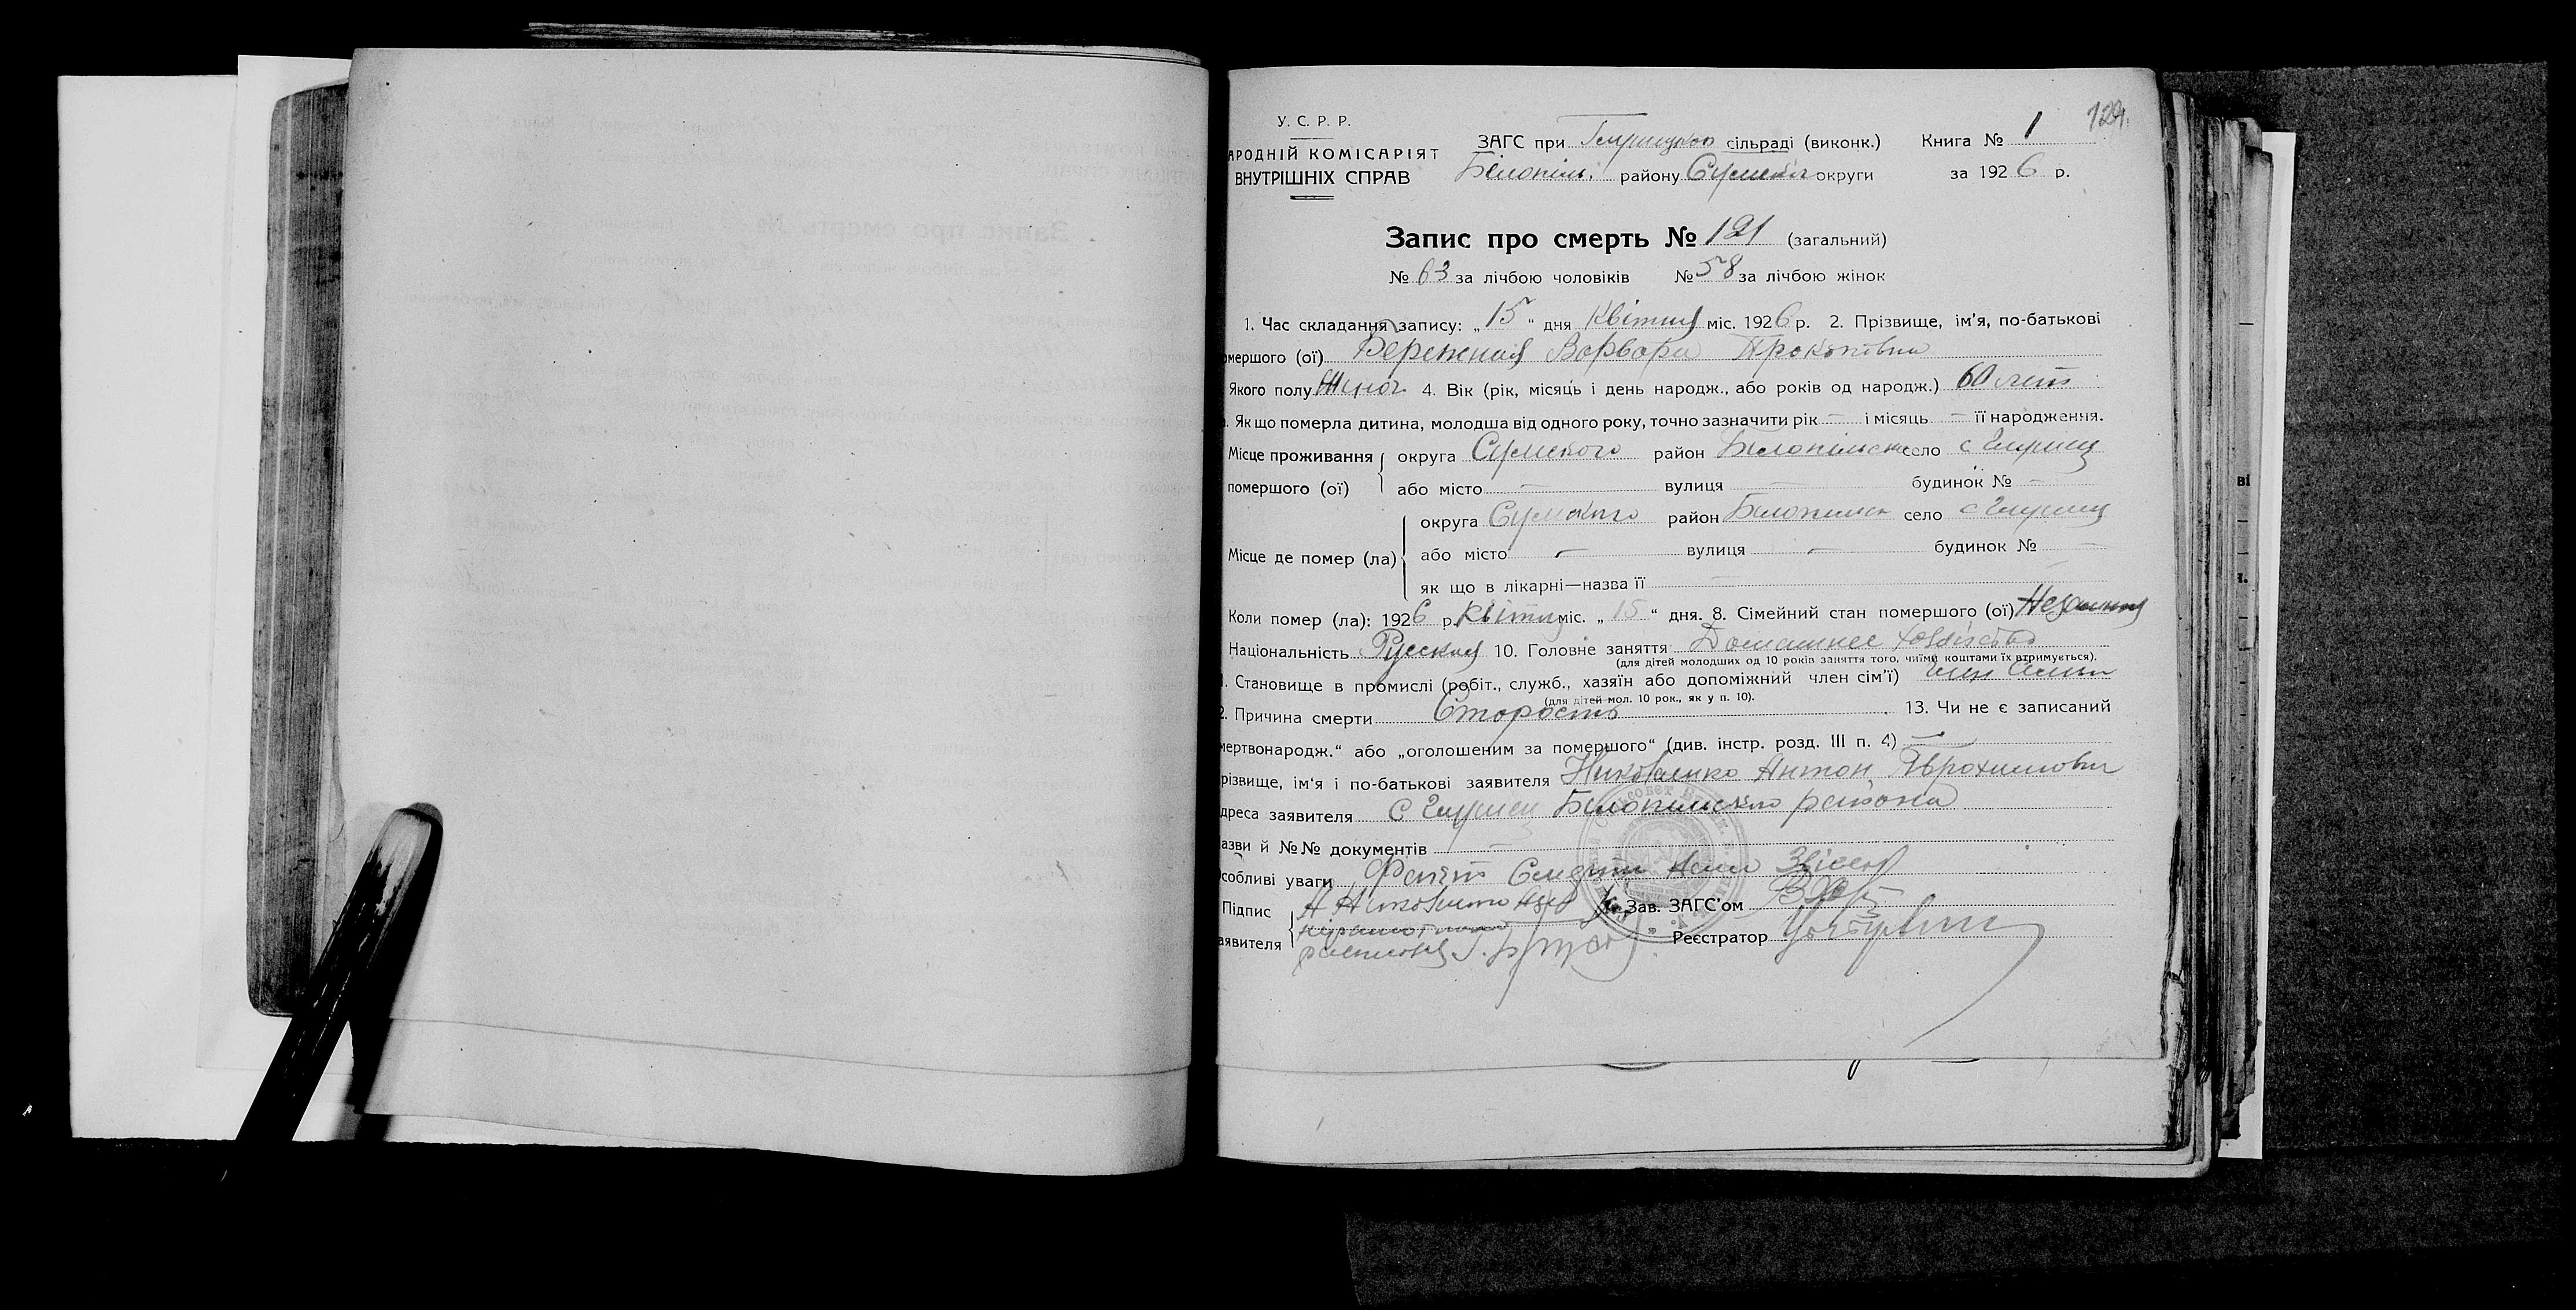 У. С. Р. Р.
АРОДНІЙ КОМІСАРІЯТ
ВНУТРІШНІХ СПРАВ
ЗАГС при сільраді (виконк.) Книга № 1
Білопіл. району Сумської округи за 1926 р.
129
Запис про смерть № 121 (загальний)
№ 63 за лічбою чоловіків № 58 за лічбою жінок
1. Час складання запису: „ 15 “ дня Квітня міс. 1926 р. 2. Прізвище, ім'я, по-батькові
омершого (ої) Бережная Варвара Прокопівна
Якого полу Жіноч 4. Вік (рік, місяць і день народж., або років од народж.) 60 лет
. Як що померла дитина, молодша від одного року, точно зазначити рік — і місяць — її народження.
Місце проживання округа Сумского район Білопільск село с
помершого (ої) або місто — вулиця — будинок № —
округа Сумского район Білопільск село с
Місце де помер (ла) або місто — вулиця — будинок № —
як що в лікарні—назва її —
Коли помер (ла): 1926 р. Квітня міс. „ 15 “ дня. 8. Сімейний стан помершого (ої)
Національність Русская 10. Головне заняття Домашнее хазяйство
(для дітей молодших од 10 років заняття того, чиїми коштами їх втримується).
1. Становище в промислі (робіт., служб., хазяїн або допоміжний член сім'ї) член семьи
(для дітей мол. 10 рок., як у п. 10).
2. Причина смерти Старость 13. Чи не є записаний
мертвонародж.“ або „оголошеним за помершого“ (див. інстр. розд. III п. 4) —
різвище, ім'я і по-батькові заявителя Николаенко Антон
дреса заявителя с Білопільского района
азви й №№ документів —
собливі уваги Факт Смерти
Підпис
аявителя
Зав. ЗАГС'ом
Реєстратор